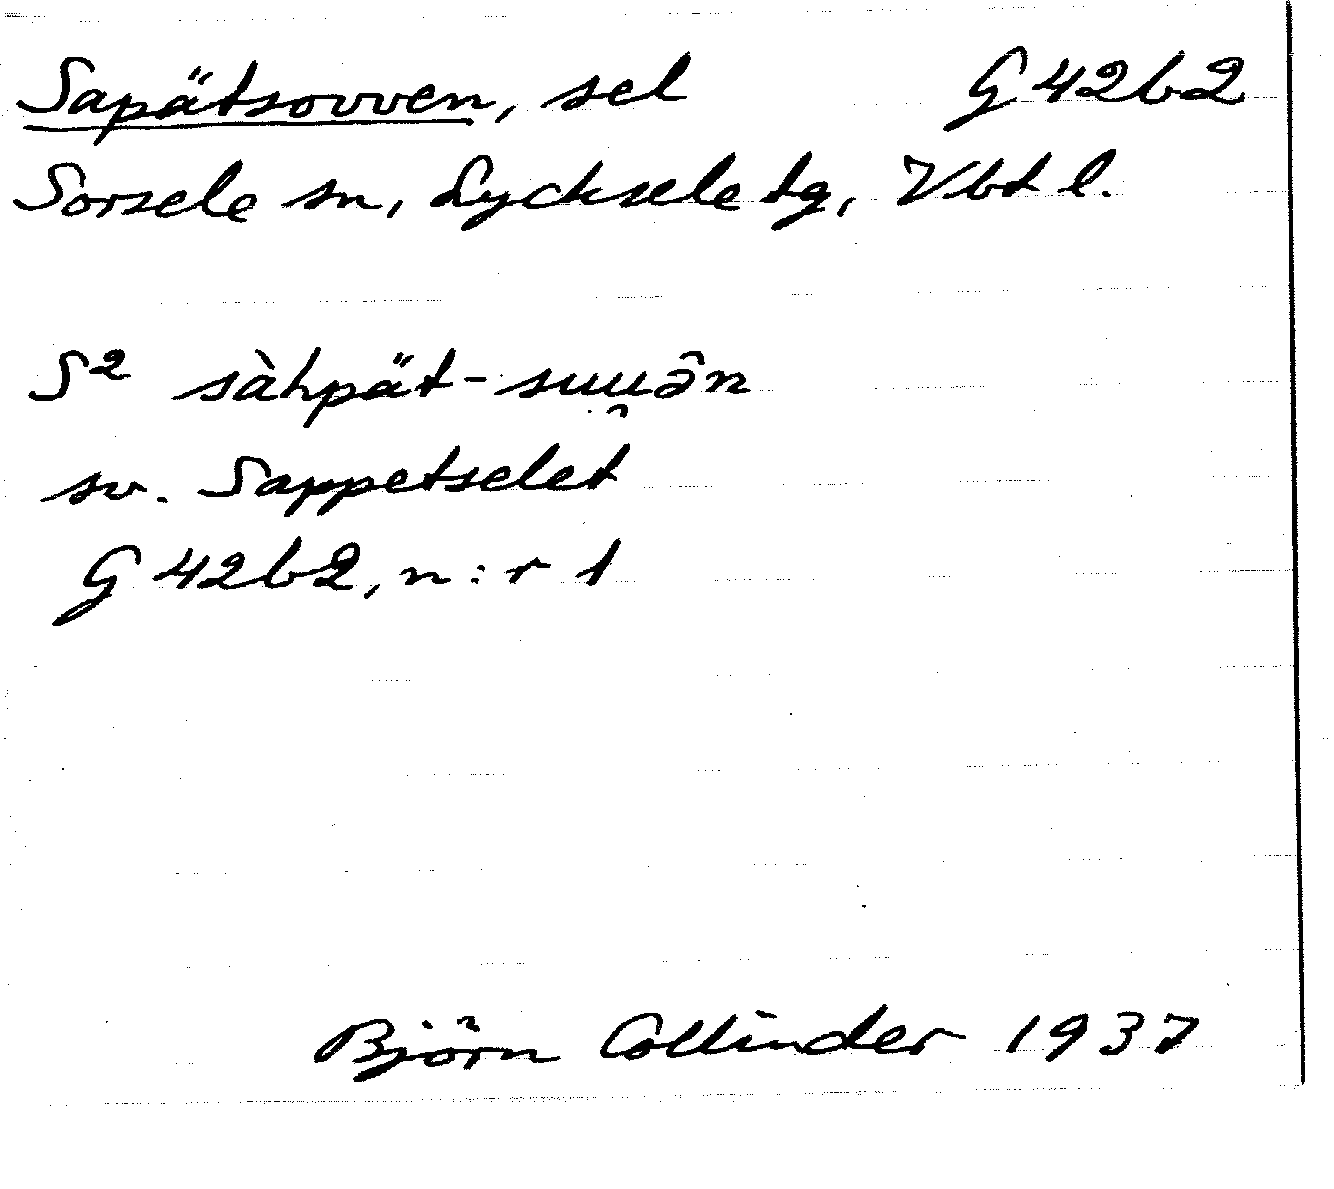 Sapätsovven, sel G 42b2
Sorsele sn, Lycksele tg, Vbt l.
S² sàhpät-suu̯ə̑n
sv. Sappetselet
G 42b2, n:r 1
Björn Collinder 1937